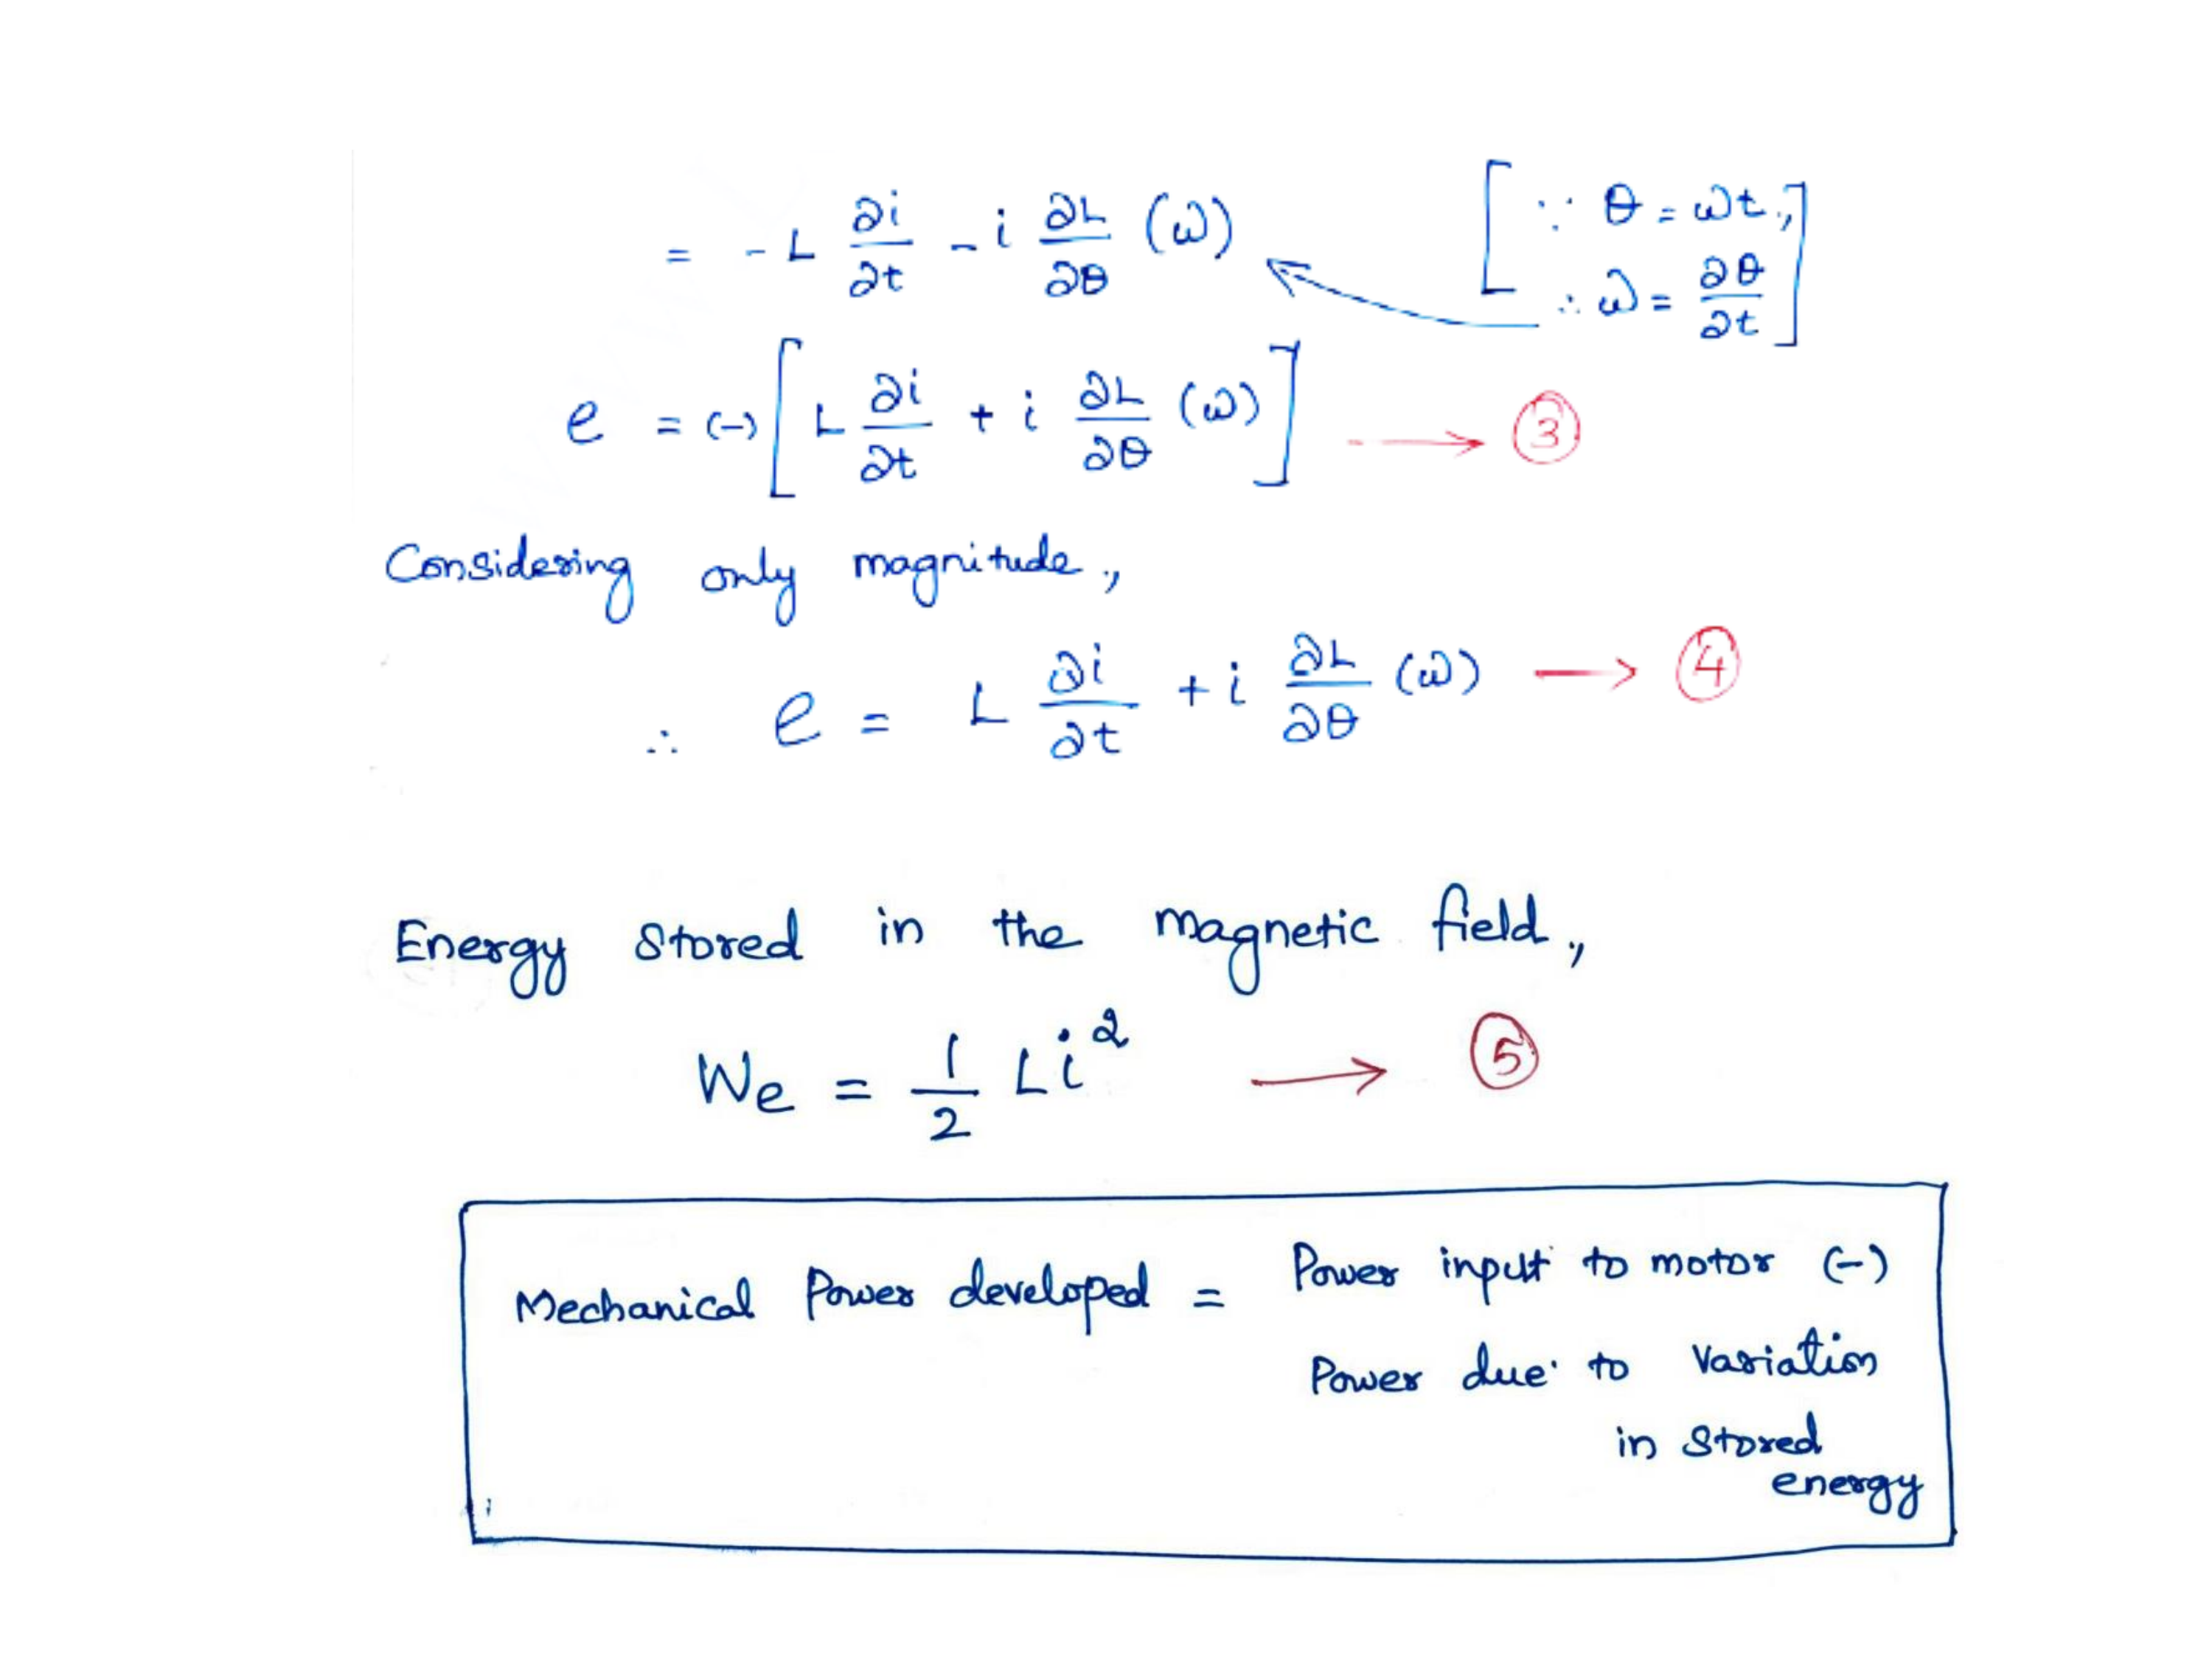 = - L ∂i/∂t - i ∂L/∂θ (ω) [∵ θ = ωt,, ∴ ω = ∂θ/∂t]
e = (-) [L ∂i/∂t + i ∂L/∂θ (ω)] → ③
Considering only magnitude,,
∴ e = L ∂i/∂t + i ∂L/∂θ (ω) → ④
Energy stored in the magnetic field,,
We = 1/2 Li² → ⑤
Mechanical Power developed = Power input to motor (-)
Power due to variation
in stored
energy